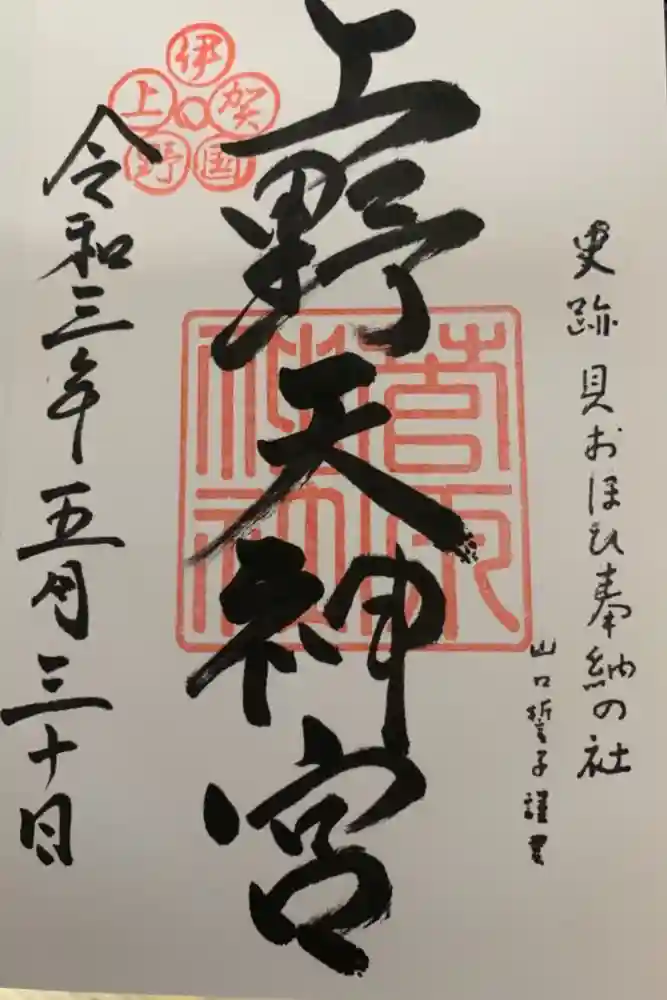 史跡 貝おほひ奉納の社
山口誓子謹書
上野天神宮
伊賀国上野
令和三年五月三十日